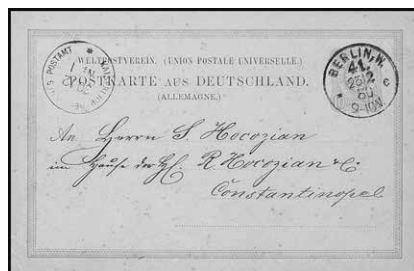 WELTPOSTVEREIN. (UNION POSTALE UNIVERSELLE.)
POSTKARTE AUS DEUTSCHLAND.
(ALLEMAGNE.)
BERLIN, W.
41.
9-10V
POSTAMT
An Herrn S. Hocozian
im Hause der H. R. Hocozian & C.
Constantinopel